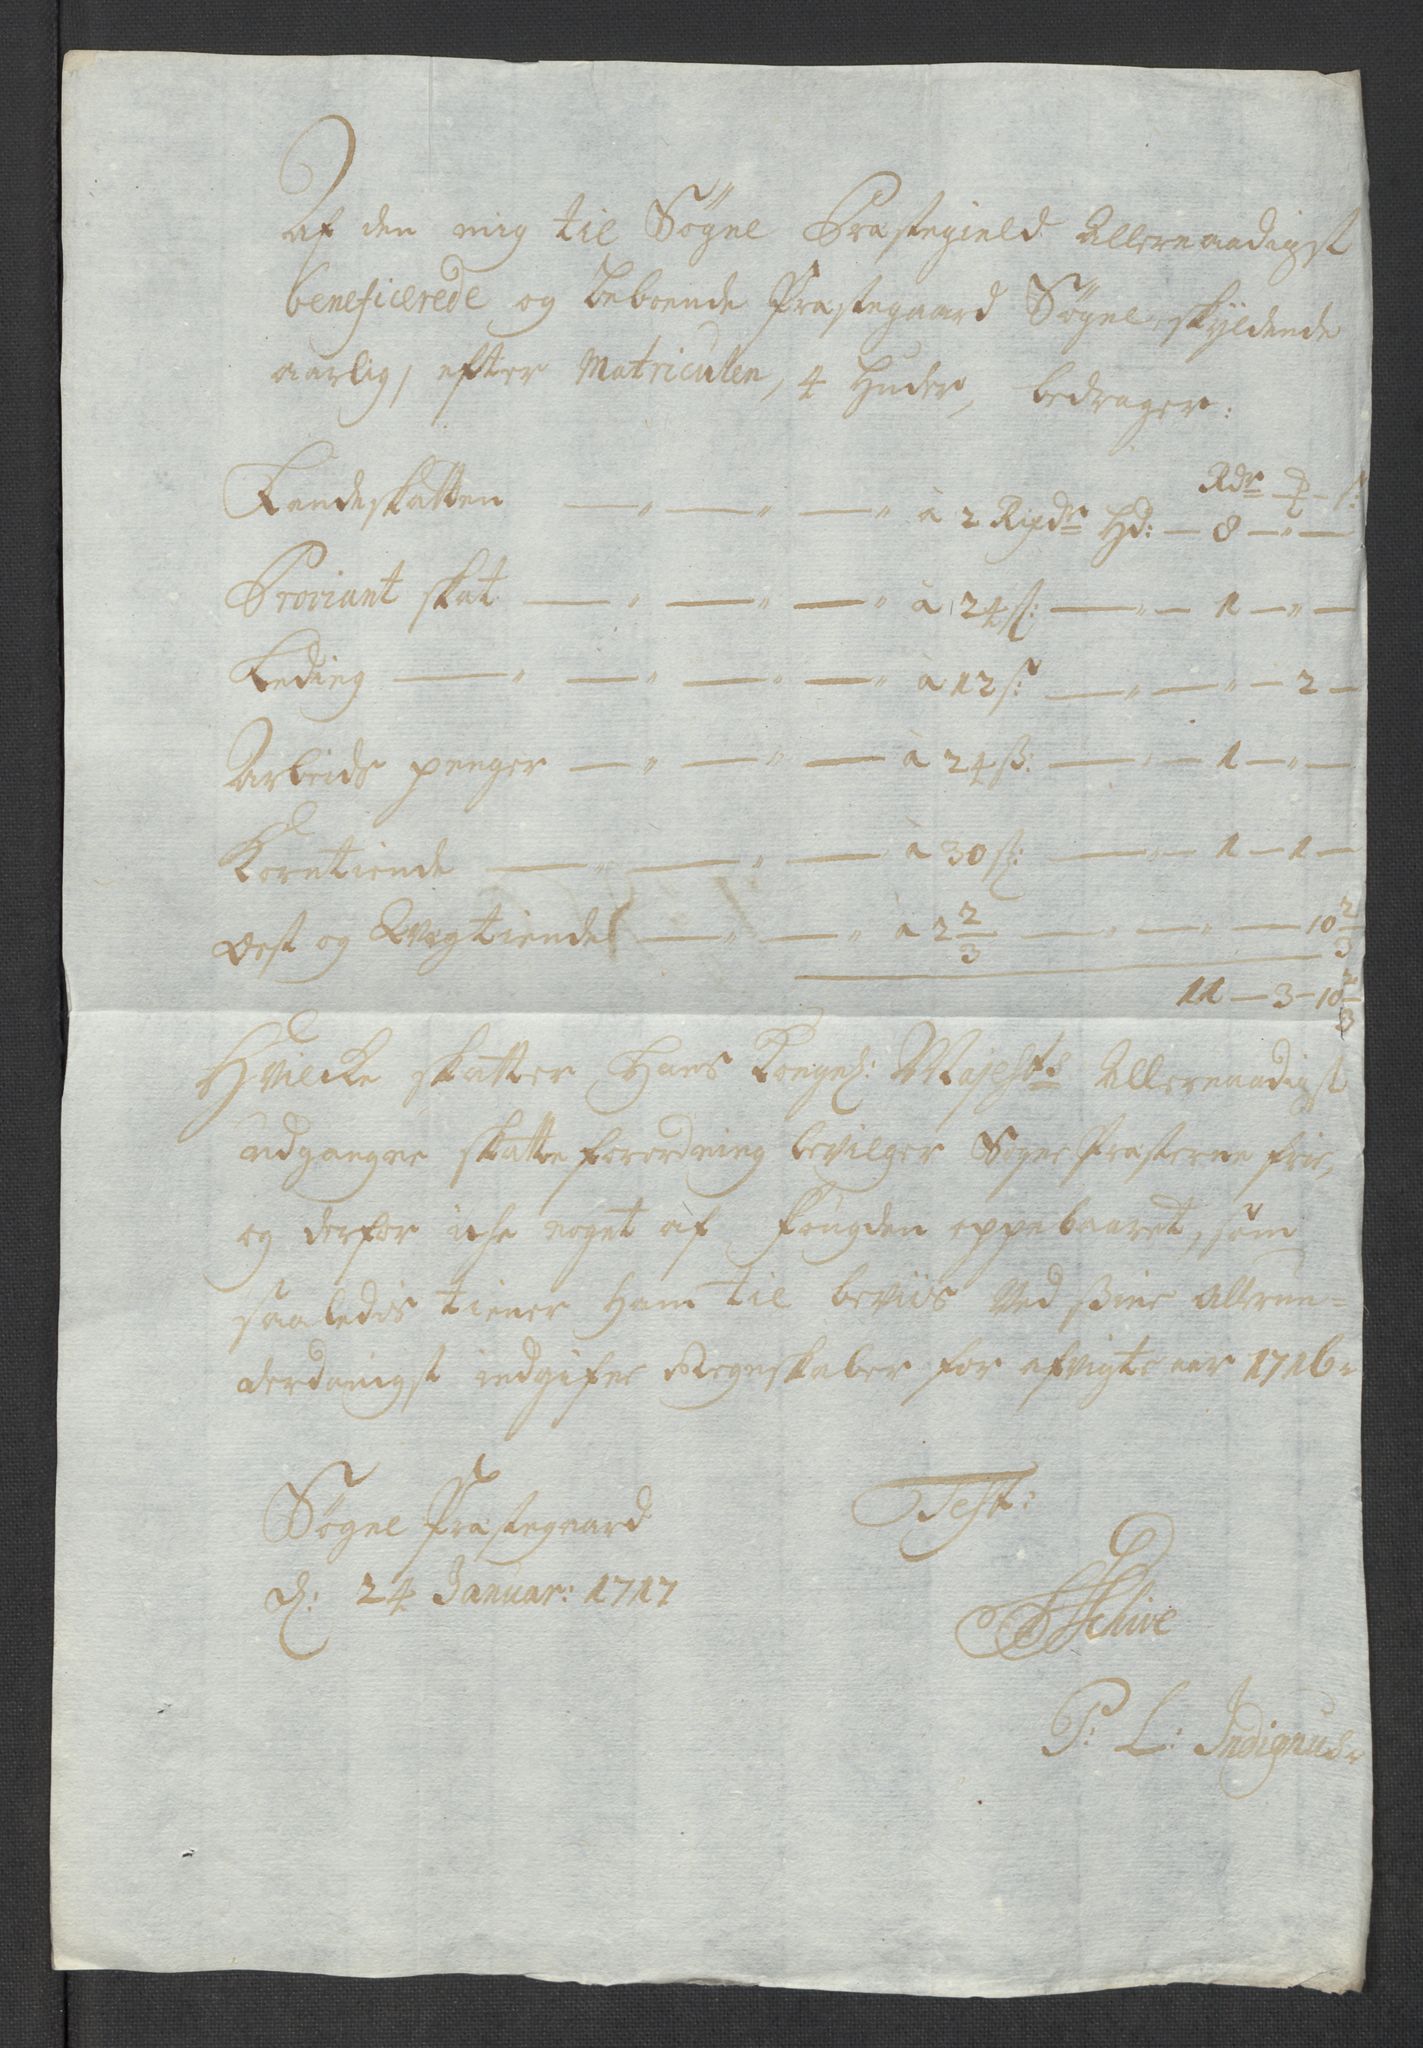 Af den mig til Sögne Præstegield Allernaadigst
beneficerede og beboende Præstegaard Sögne, skyldende
aarlig, efter Matriculen, 4 Huder, bedrager:
Rdr — ₰ — s:
Landskatten — " — " — " à 2 Rixdr Hd: — 8 — " —
Proviant skat — " — " — " à 24 s: — " — 1 — " —
Leding — " — " — " — " à 12 s: — " — " — 2 —
Arbeids penger — " — " — à 24 s: — " — 1 — " —
Korntiende — " — " — à 30 s: — " — 1 — 1 —
Oest og Qvegtiende — " — " à 2 2/3 — " — " — 10 2/3
11 — 3 — 10 2/3
Hvilcke skatter Hans Kongel: Majestts Allernaadigst
udgangne skatte forordning bevilger Sogne Præsterne frie,
og derfor iche noget af Fougden oppebaaret, som
saaledis tiener ham til beviis ved ßine allerun=
derdanigst indgifne Regnskaber for afvigte aar 1716.
Sögne Præstegaard
d: 24 Januar: 1717
Test:
Schive
P: L: Indignus